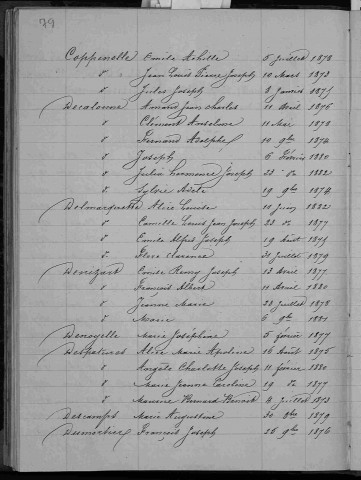 79
Coppenolle Emile Achille 6 Juillet 1878
d° Jean Louis Pierre Joseph 10 Mars 1873
d° Jules Joseph 8 Janvier 1875
Decalonne Armand Jean Charles 11 Avril 1876
d° Clément Anselme 11 Mai 1878
d° Fernand Adolphe 10 9bre 1874
d° Joseph 6 Février 1880
d° Julia Hermence Joseph 23 1882
d° Sylvie Adèle 19 9bre 1874
Delmarquette Alice Louise 10 Juin 1882
d° Camille Louis Jean Joseph 23 1877
d° Emile Alfred Joseph 19 Août 1875
d° Flore Clarence 31 Juillet 1879
Denizart Emile Remy Joseph 13 Avril 1877
d° François Albert 11 Avril 1880
d° Jeanne Marie 28 Juillet 1878
d° Marie 6 9bre 1881
Denoyelle Marie Joséphine 5 février 1877
Despatures Aline Marie Apoline 16 Août 1875
d° Charlotte Joseph 11 février 1880
d° Marie Jeanne Caroline 19 1877
d° Maurice Bernard Benoit 8 Juillet 1873
Descamps Marie Augustine 30 8bre 1879
François Joseph 26 9bre 1876